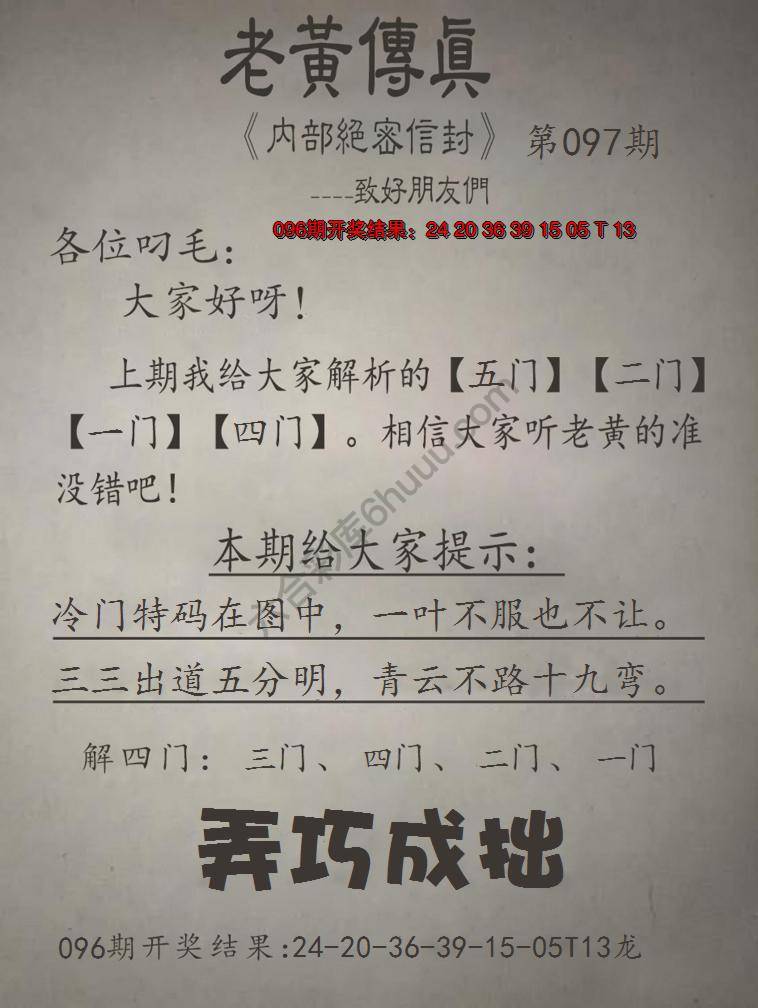 老黃傳眞
《内部絕密信封》 第097期
----致好朋友們
096期开奖结果：24 20 36 39 15 05 T 13
各位叼毛：
大家好呀！
上期我给大家解析的【五门】【二门】
【一门】【四门】。相信大家听老黄的准
没错吧！
本期给大家提示：
冷门特码在图中，一叶不服也不让。
三三出道五分明，青云不路十九弯。
解四门：三门、四门、二门、一门
弄巧成拙
096期开奖结果:24-20-36-39-15-05T13龙
六合彩库6huuu.com